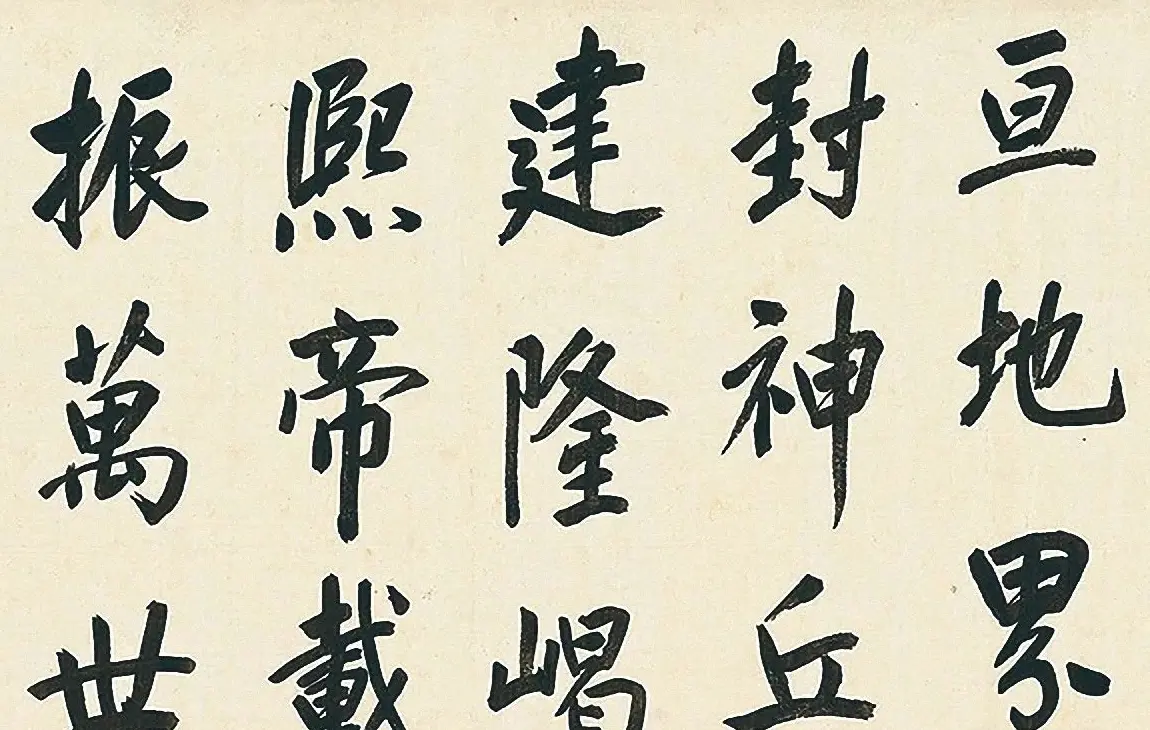 亘地累
封神丘
建隆嵑
熙帝載
振萬世